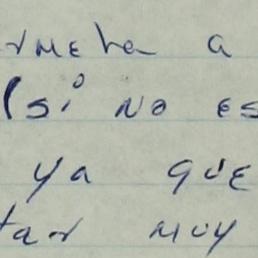 rmera a
(si no es
ya que
tar muy